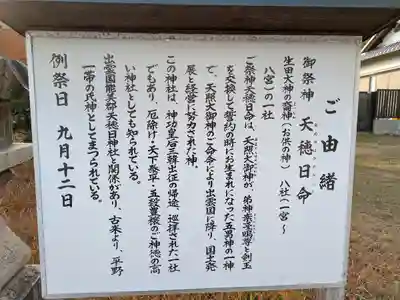 ご由緒
御祭神　天穂日命
生田大神の裔神（お供の神）　八社（一宮～
八宮）の一社
ご祭神天穂日命は、天照大御神が、弟神素盞鳴尊と剣玉
を交換して誓約の時にお生まれになった五男神の一神
で、天照大御神のご命令により出雲国に降り、国土発
展と経営に努力された神
この神社は、神功皇后三韓出征の帰途、巡拝された一社
でもあり、厄除け・天下泰平・五穀豊穣のご神徳の高
い神社としても知られている。
出雲国能美郡天穂日神社と関係があり、古来より、平野
一帯の氏神としてまつられている。
例祭日　九月十二日